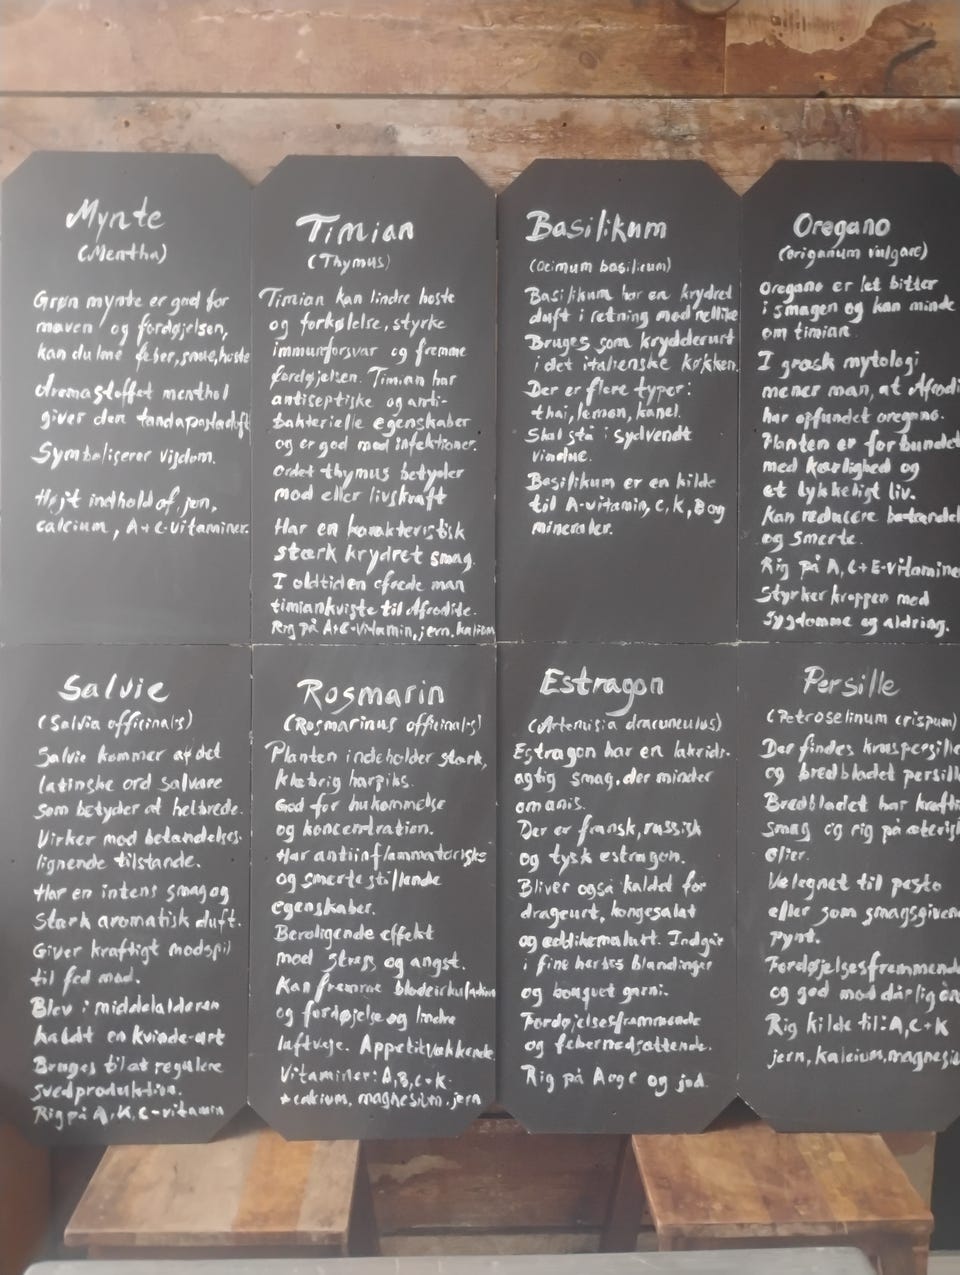 Mynte
(Mentha)
Grøn mynte er god for
maven og fordøjelsen,
kan du lme feber, snue, hoste
Aromastoffet menthol
giver den tandapastaduft
Symboliserer visdom.
Højt indhold af jern,
calcium, A+C-vitaminer.
Timian
(Thymus)
Timian kan lindre hoste
og forkølelse, styrke
immunforsvar og fremme
fordøjelsen. Timian har
antiseptiske og anti-
bakterielle egenskaber
og er god mod infektioner.
Ordet thymus betyder
mod eller livskraft
Har en karakteristisk
stærk krydret smag.
I oldtiden ofrede man
timiankviste til Afrodite.
Rig på A+C-vitamin, jern, kalium
Basilikum
(Ocimum basilicum)
Basilikum har en krydret
duft i retning mod nellike
Bruges som krydderurt
i det italienske køkken.
Der er flere typer:
thai, lemon, kanel.
Skal stå i sydvendt
vindue.
Basilikum er en kilde
til A-vitamin, C, K, B og
mineraler.
Oregano
(origanum vulgare)
Oregano er let bitter
i smagen og kan minde
om timian.
I græsk mytologi
mener man, at Afrodi
har opfundet oregano.
Planten er forbundet
med kærlighed og
et lykkeligt liv.
Kan reducere betændel
og smerte.
Rig på A, C+E-vitamine
Styrker kroppen mod
sygdomme og aldring.
Salvie
(Salvia officinalis)
Salvie kommer af det
latinske ord salvare
som betyder at helbrede.
Virker mod betændelses-
lignende tilstande.
Har en intens smag og
Stærk aromatisk duft.
Giver kraftigt modspil
til fed mad.
Blev i middelalderen
kaldt en kvinde-urt
Bruges til at regulere
svedproduktion.
Rig på A, K, C-vitamin
Rosmarin
(Rosmarinus officinalis)
Planten indeholder stærk,
klæbrig harpiks.
God for hukommelse
og koncentration.
Har antiinflammatoriske
og smertestillende
egenskaber.
Beroligende effekt
mod stress og angst.
Kan fremme blodcirkulation
og fordøjelse og lindre
luftveje. Appetitvækkende.
Vitaminer: A, B, C+K
+calcium, magnesium, jern
Estragon
(Artemisia dracunculus)
Estragon har en lakrids-
agtig smag, der minder
om anis.
Der er fransk, russisk
og tysk estragon.
Bliver også kaldet for
drageurt, kongesalat
og eddikemalurt. Indgår
i fine herbes blandinger
og bouquet garni.
Fordøjelsesfremmende
og febernedsættende.
Rig på A og C og jod.
Persille
(Petroselinum crispum)
Der findes kruspersille
og bredbladet persill
Bredbladet har krafti
smag og rig på æteris
olier.
Velegnet til pesto
eller som smagsgiven
pynt.
Fordøjelsesfremmend
og god mod dårlig ån
Rig kilde til: A, C+K
jern, kalcium, magnesiu